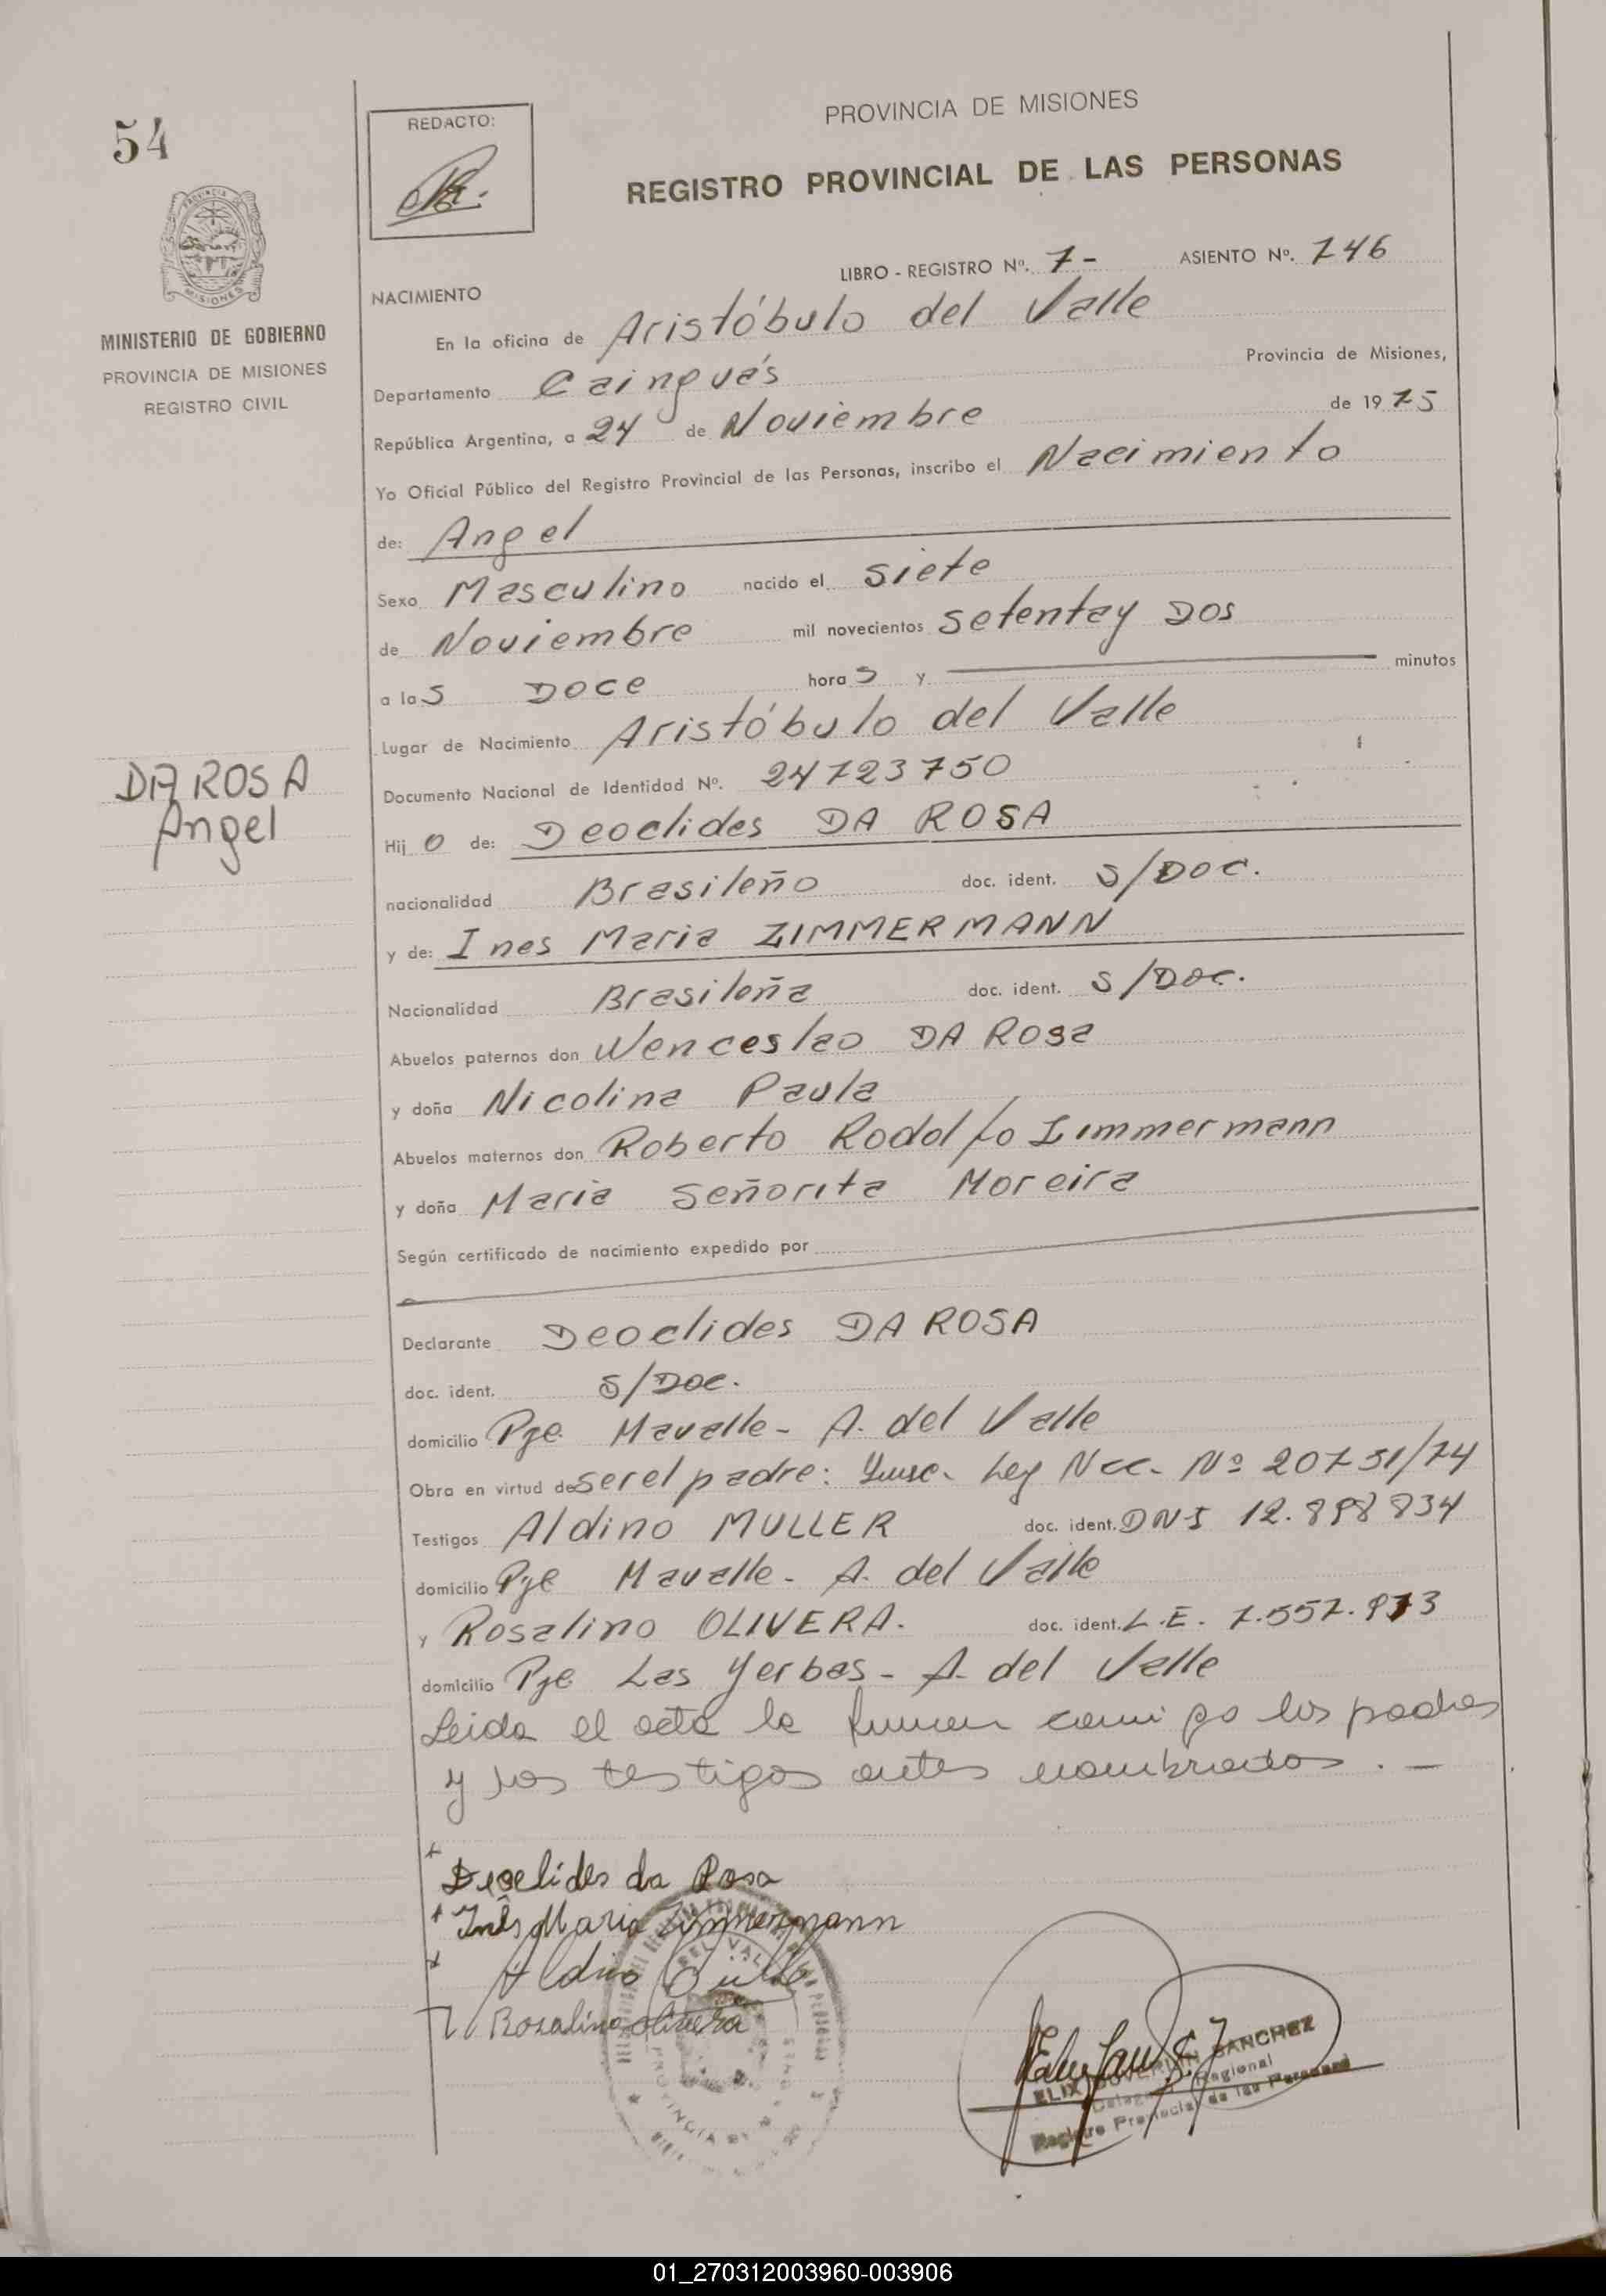 54
REDACTO:
PROVINCIA DE MISIONES
REGISTRO PROVINCIAL DE LAS PERSONAS
PROVINCIA
MISIONES
MINISTERIO DE GOBIERNO
PROVINCIA DE MISIONES
REGISTRO CIVIL
LIBRO - REGISTRO Nº. 7- ASIENTO Nº. 746
NACIMIENTO
En la oficina de Aristóbulo del Valle
Departamento Cainguás Provincia de Misiones,
República Argentina, a 24 de Noviembre de 1975
Yo Oficial Público del Registro Provincial de las Personas, inscribo el Nacimiento
de: Angel
Sexo Masculino nacido el siete
de Noviembre mil novecientos setentay Dos
a las Doce horas y minutos
Lugar de Nacimiento Aristóbulo del Valle
DA ROSA
Angel
Documento Nacional de Identidad Nº. 24723750
Hijo de: Deoclides DA ROSA
nacionalidad Brasileño doc. ident. S/Doc.
y de: Ines Maria ZIMMERMANN
Nacionalidad Brasileña doc. ident. S/Doc.
Abuelos paternos don Wenceslao DA Rosa
y doña Nicolina Paula
Abuelos maternos don Roberto Rodolfo Zimmermann
y doña Maria Señorita Moreira
Según certificado de nacimiento expedido por
Declarante Deoclides DA ROSA
doc. ident. S/Doc.
domicilio Pje Mavalle - A. del Valle
Obra en virtud de ser el padre: Ley Nac. Nº 20751/74
Testigos Aldino MULLER doc. ident. DNI 12.898834
domicilio Pje Mavalle - A. del Valle
y Rosalino OLIVERA. doc. ident. L.E. 7.557.973
domicilio Pje Las Yerbas - A. del Valle
Leida el acta la firman conmigo los padres
y los testigos antes nombrados. -
Deoclides da Rosa
Inês Maria Zimmermann
Aldino Müller
Rosalino Olivera
SANCHEZ
Delegado Regional
Registro Provincial de las Personas
01_270312003960-003906